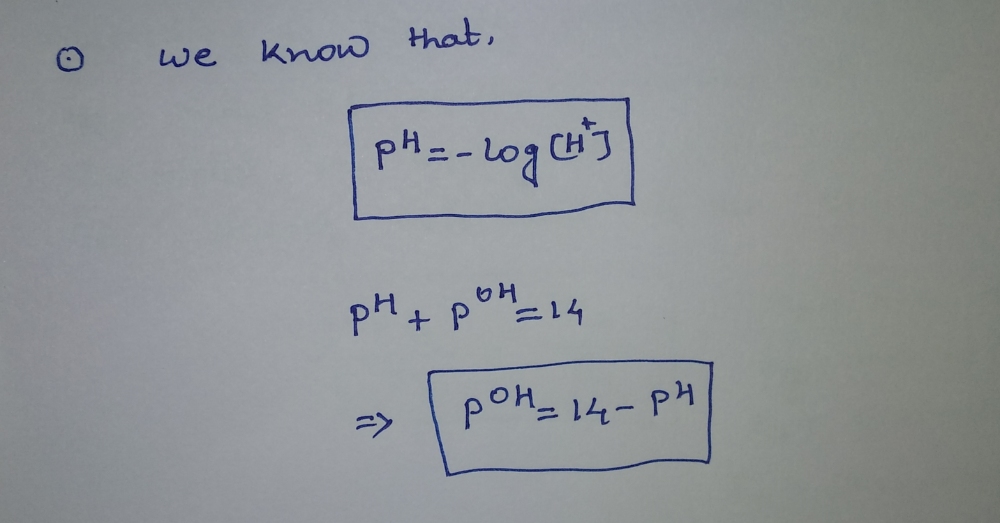 ⊙ we know that,
pᴴ = - log [H⁺]
pᴴ + pᴼᴴ = 14
=> pᴼᴴ = 14 - pᴴ